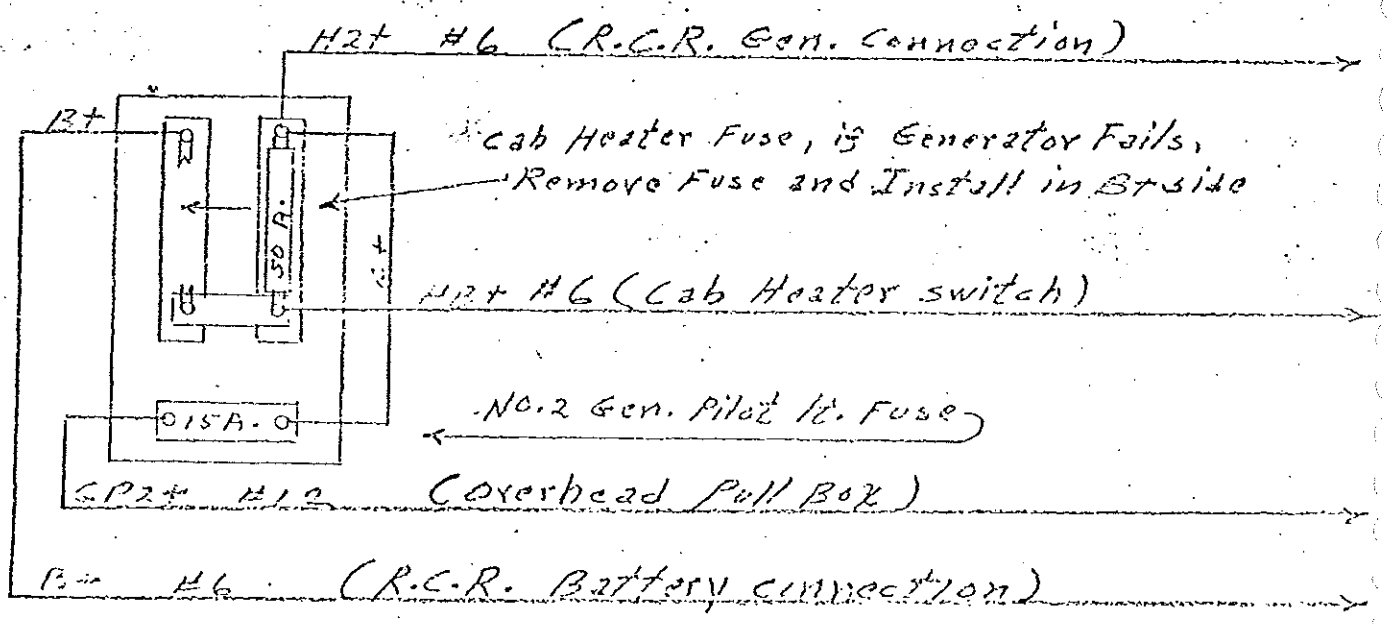 H2+ #6 (R.C.R. Gen. Connection)
B+
Cab Heater Fuse, if Generator Fails,
Remove Fuse and Install in B+ side
50 A.
HR+ #6 (Cab Heater switch)
15A.
No.2 Gen. Pilot lt. Fuse
GP2+ #12 (Overhead Pull Box)
B+ #6 (R.C.R. Battery connection)